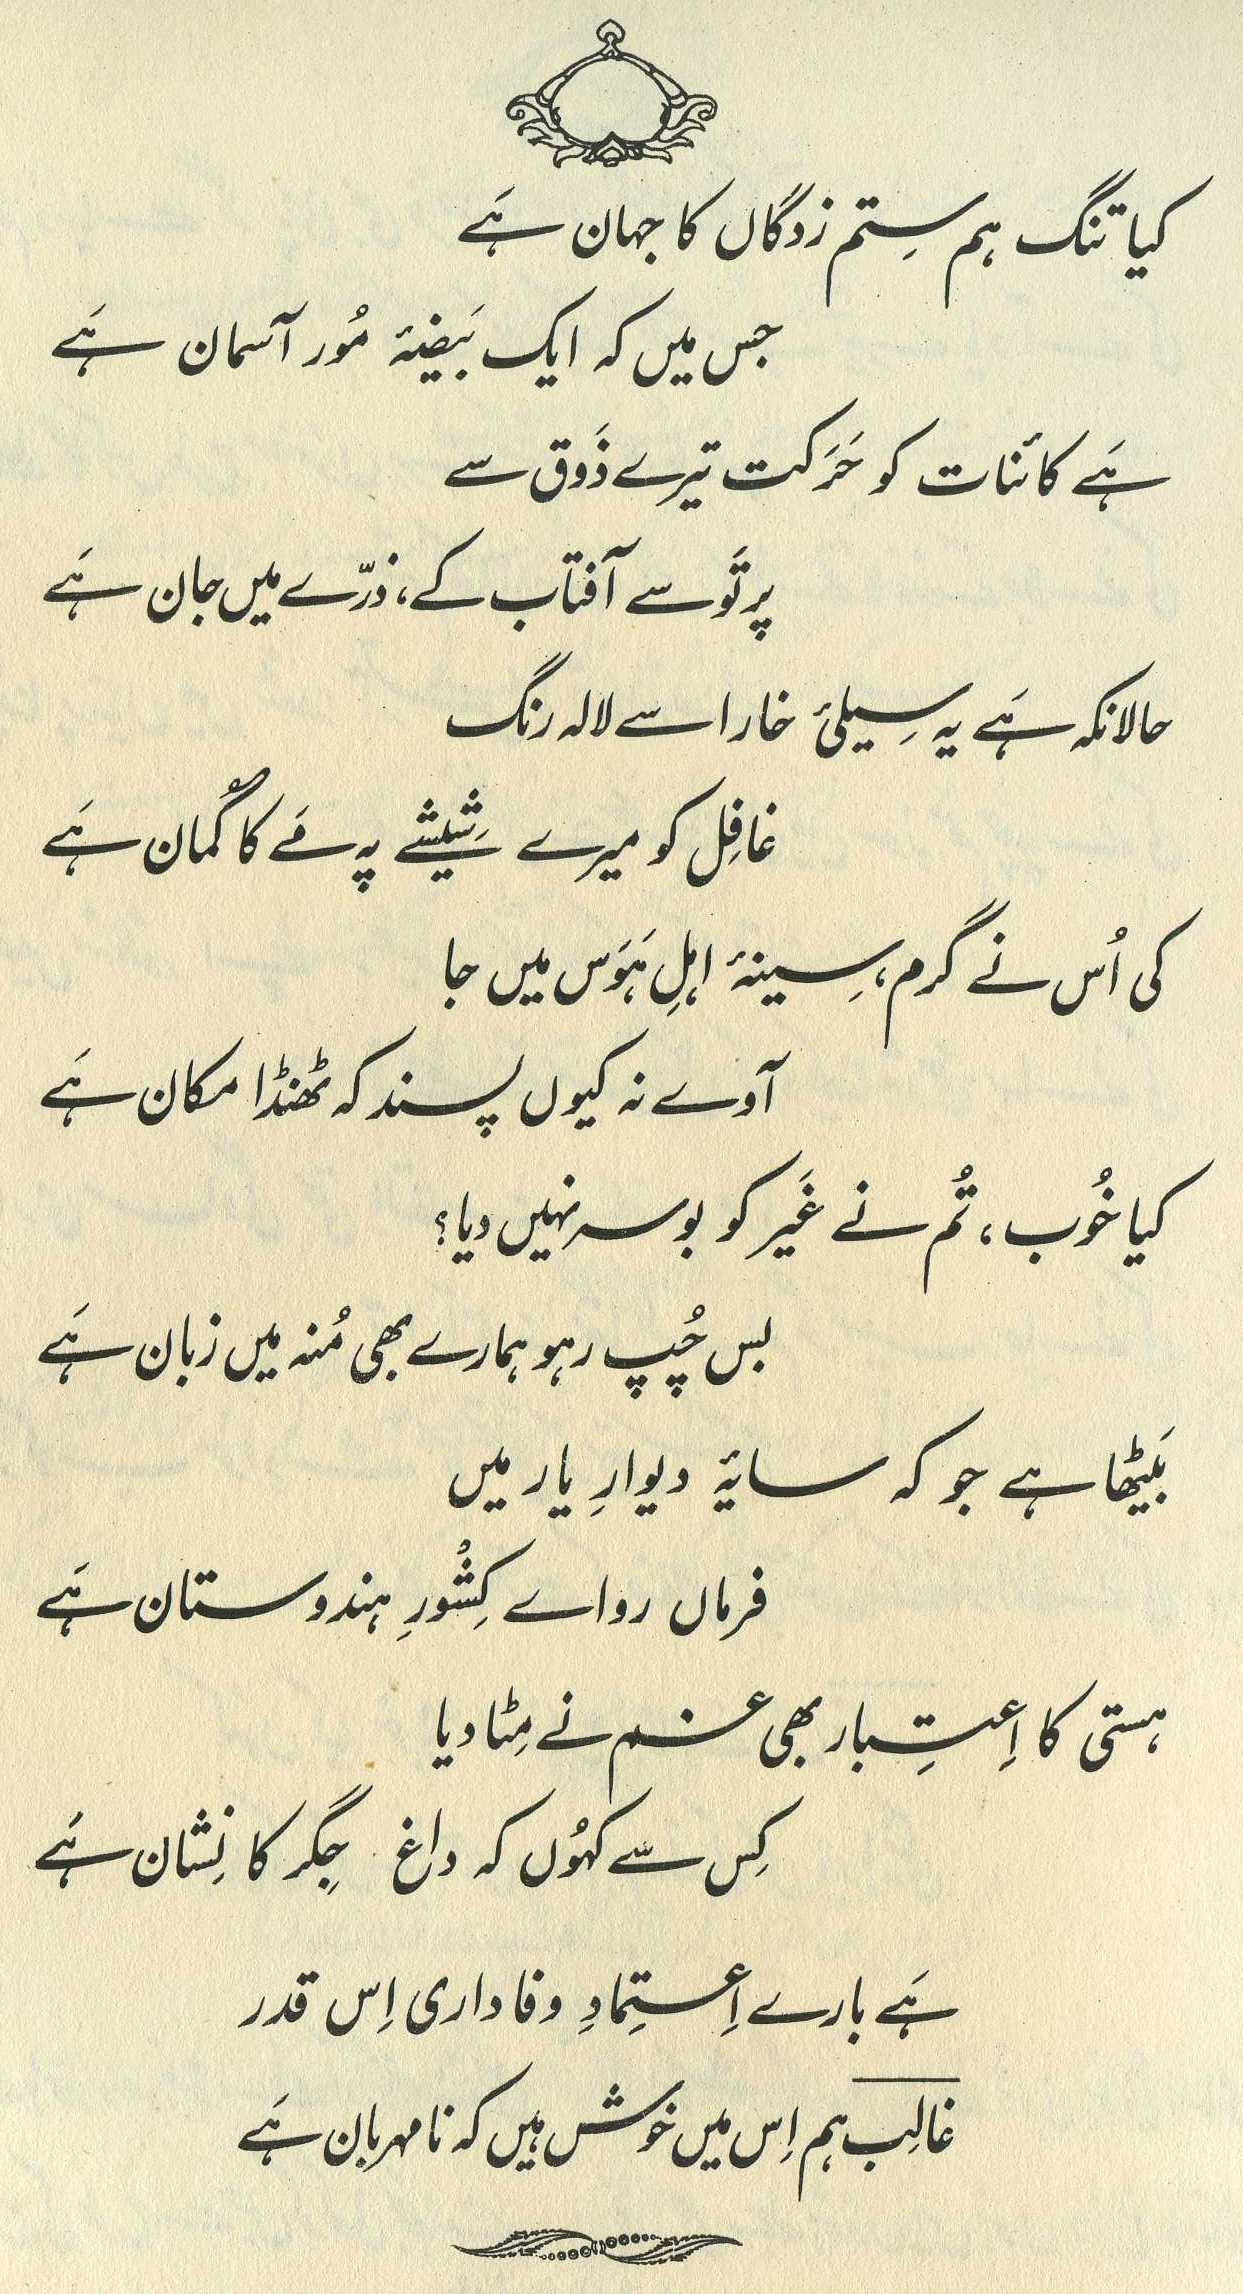 کیا تنگ ہم سِتم زدگاں کا جہان ہَے
جس میں کہ ایک بَیضۂ مُور آسمان ہَے
ہَے کائنات کو حَرَکت تیرے ذَوق سے
پرتَو سے آفتاب کے، ذرّے میں جان ہَے
حالانکہ ہَے یہ سِیلیٔ خارا سے لالہ رنگ
غافِل کو میرے شِیشے پہ مَے کا گُمان ہَے
کی اُس نے گرم، سِینۂ اہلِ ہَوَس میں جا
آوے نہ کیوں پسند کہ ٹھنڈا مکان ہَے
کیا خُوب، تُم نے غَیر کو بوسہ نہیں دیا؟
بس چُپ رہو ہمارے بھی مُنہ میں زبان ہَے
بَیٹھا ہے جو کہ سایۂ دیوارِ یار میں
فرماں رواے کِشْورِ ہندوستان ہَے
ہستی کا اِعتِبار بھی غم نے مِٹا دیا
کِس سے کہُوں کہ داغ جِگر کا نِشان ہَے
ہَے بارے اِعتِمادِ وفاداری اِس قدر
غالِب ہم اِس میں خوش ہیں کہ نامہربان ہَے